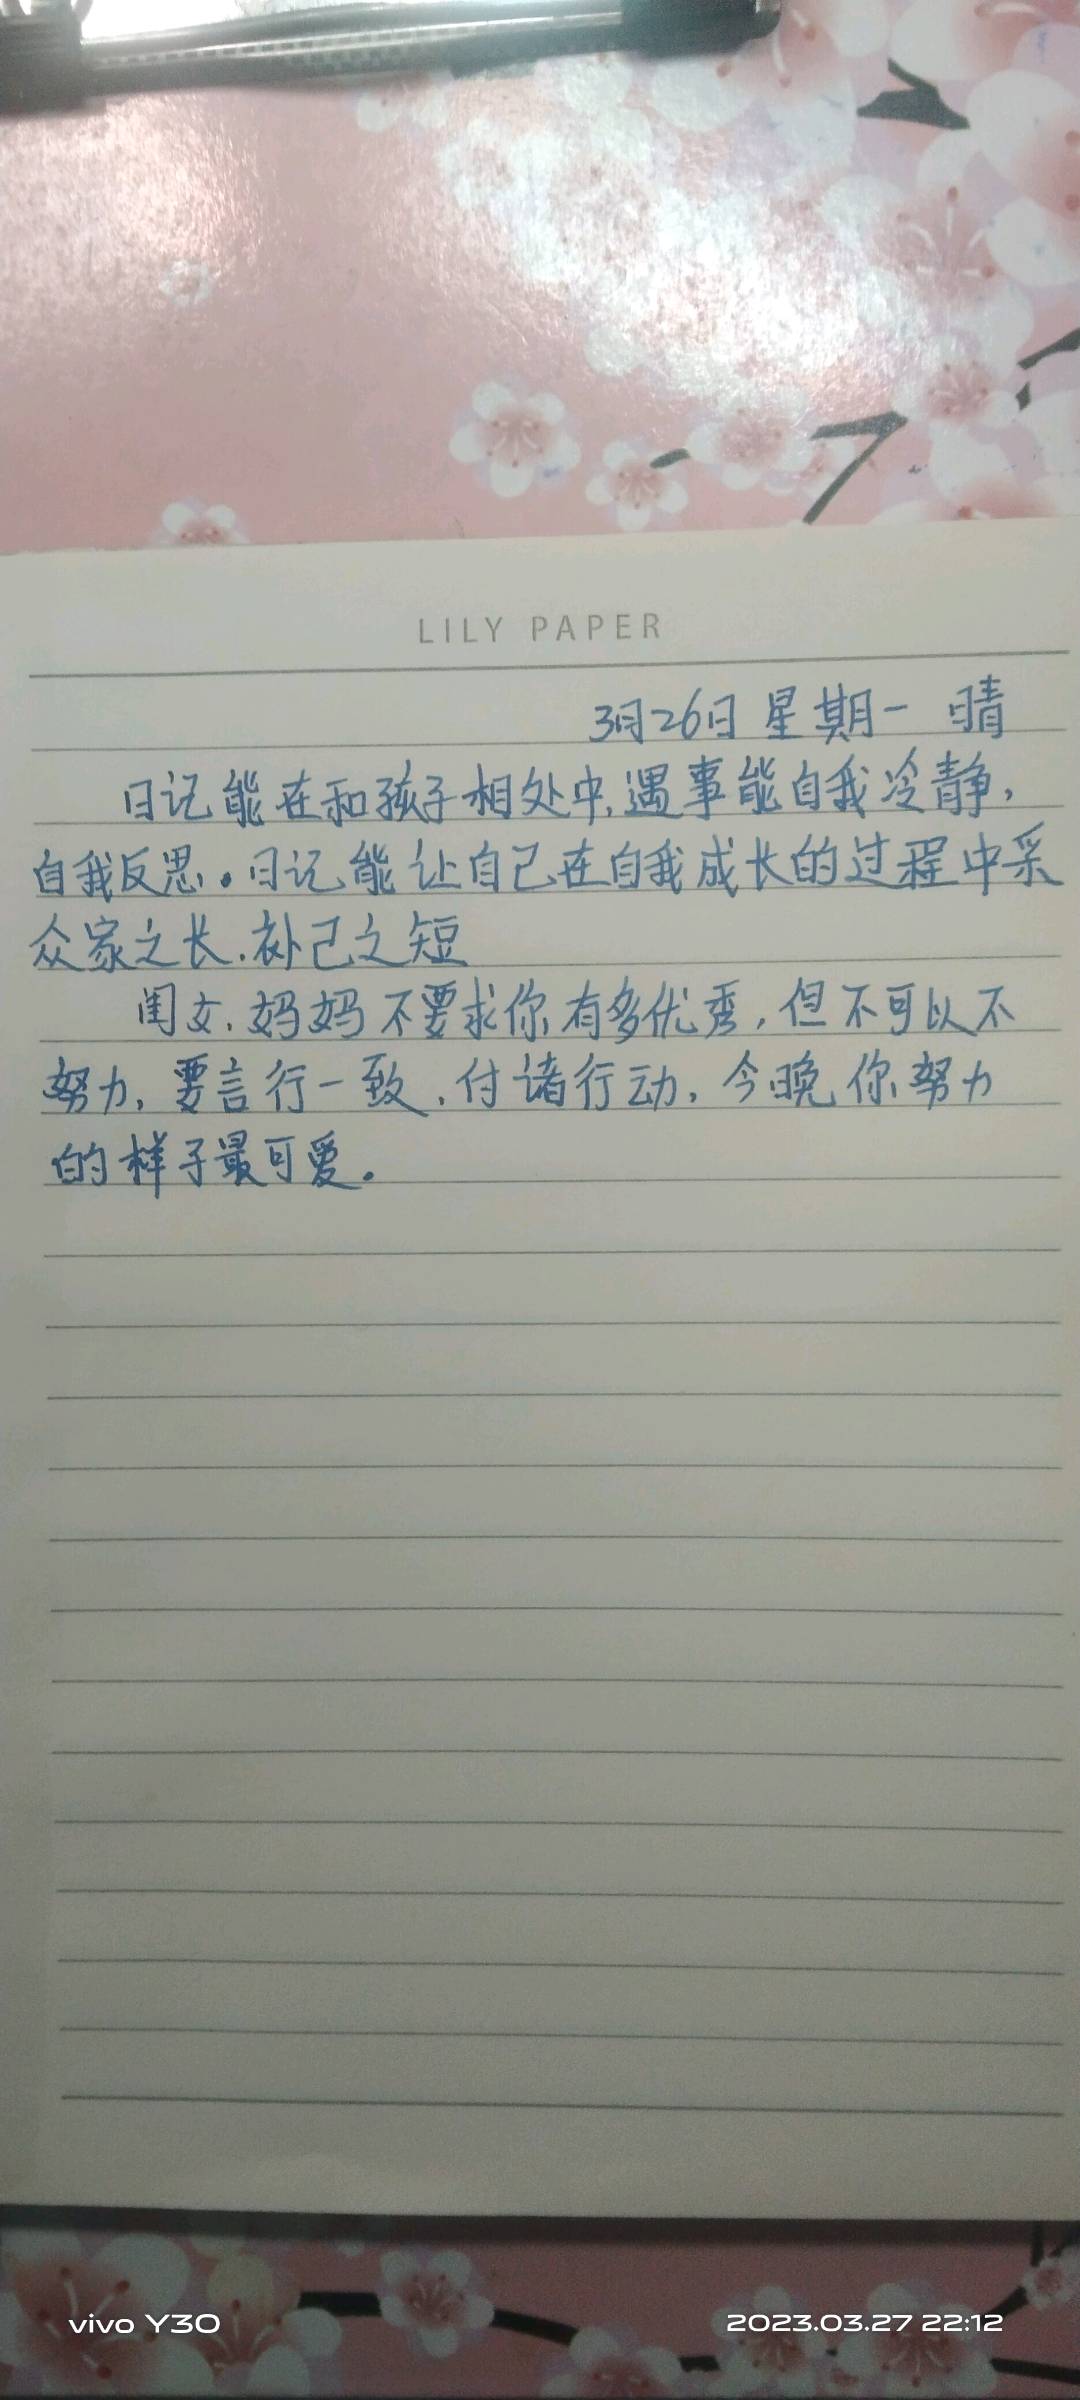 LILY PAPER
3月26日 星期一 晴
日记能在和孩子相处中,遇事能自我冷静,
自我反思。日记能让自己在自我成长的过程中采
众家之长.补己之短
闺女,妈妈不要求你有多优秀,但不可以不
努力,要言行一致,付诸行动,今晚你努力
的样子最可爱。
vivo Y30
2023.03.27 22:12